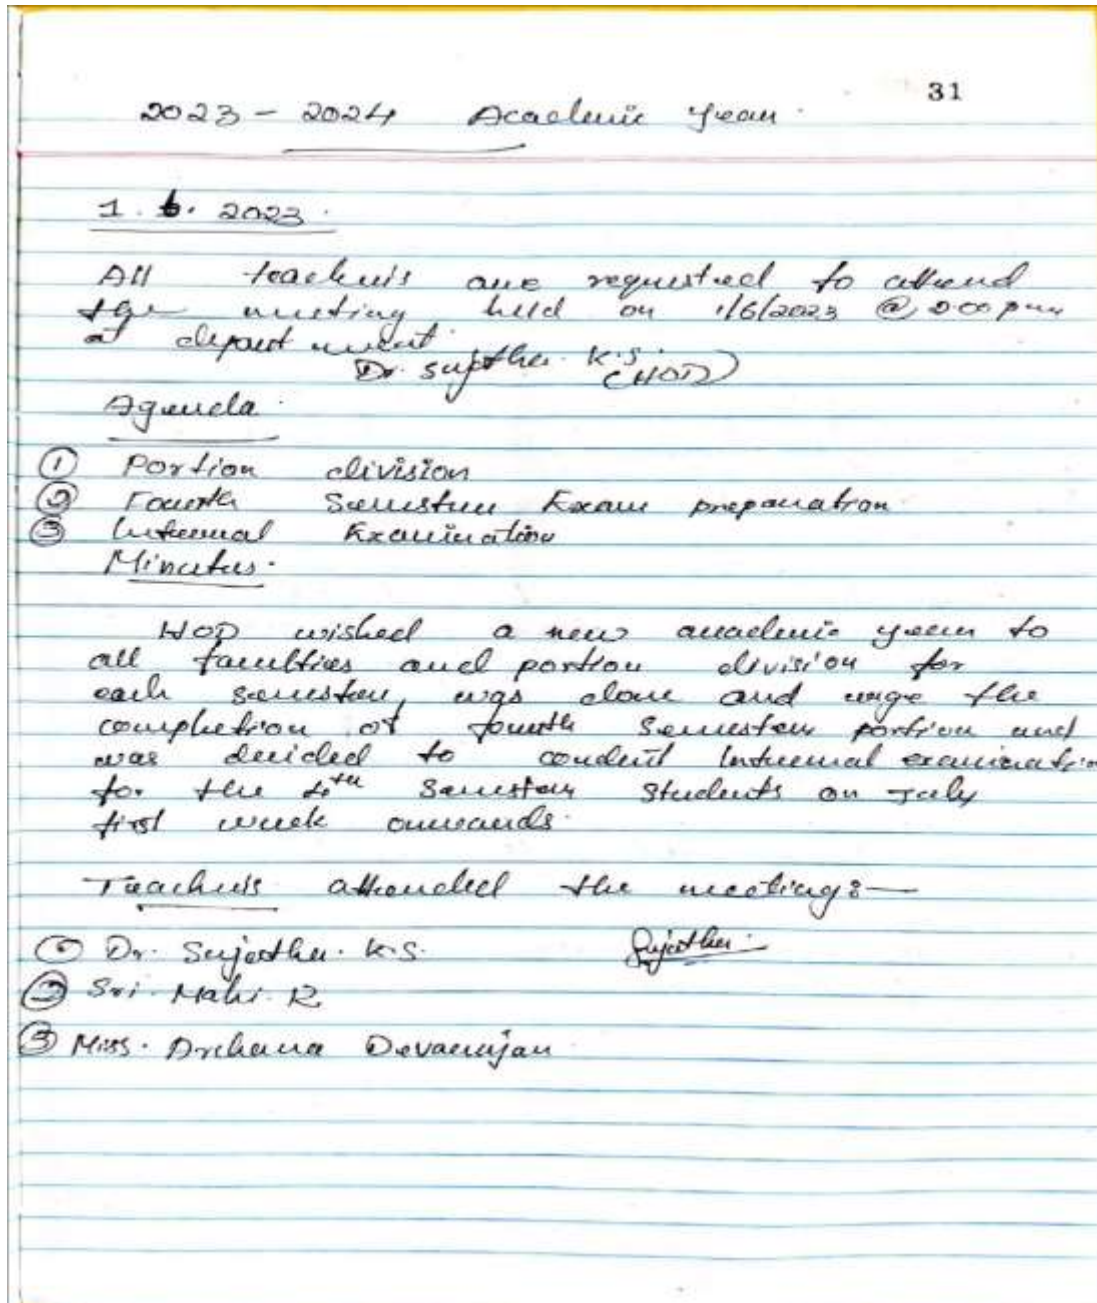 31
2023 - 2024 Academic year.
1. 6. 2023.
All teachers are requested to attend
the meeting held on 1/6/2023 @ 2:00 pm
at department.
Dr. Sujatha. K.S.
(HOD)
Agenda.
① Portion division
② Fourth Semester Exam preparation
③ Internal Examination
Minutes.
HOD wished a new academic year to
all faculties and portion division for
each semester, was done and urge the
completion of fourth Semester portion and
was decided to conduct Internal examination
for the 4th Semester Students on July
first week onwards.
Teachers attended the meeting:-
① Dr. Sujatha. K.S. Sujatha
② Sri. Mahi. R
③ Miss. Archana Devarajan